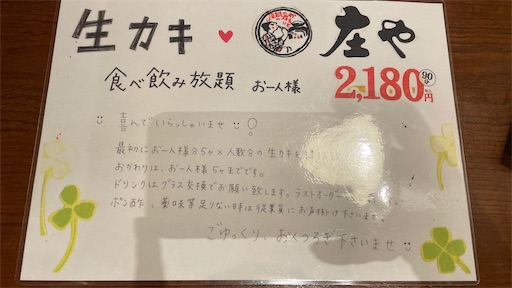 生カキ♥ 庄や
食べ飲み放題 お一人様 2,180円 90分
喜んでいらっしゃいませ
最初にお一人様分5ヶ×人数分の生カキを
おかわりは、お一人様5ヶまでです。
ドリンクはグラス交換でお願い致します。ラストオーダー
ポン酢、薬味等足りない時は従業員にお声掛け下さいませ。
ごゆっくり、おくつろぎ下さいませ